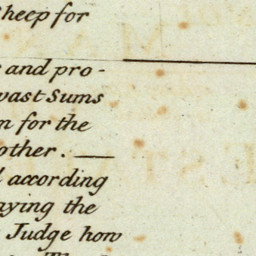 Sheep for
and pro-
vast Sums
for the
other. —
according
aying the
Judge how